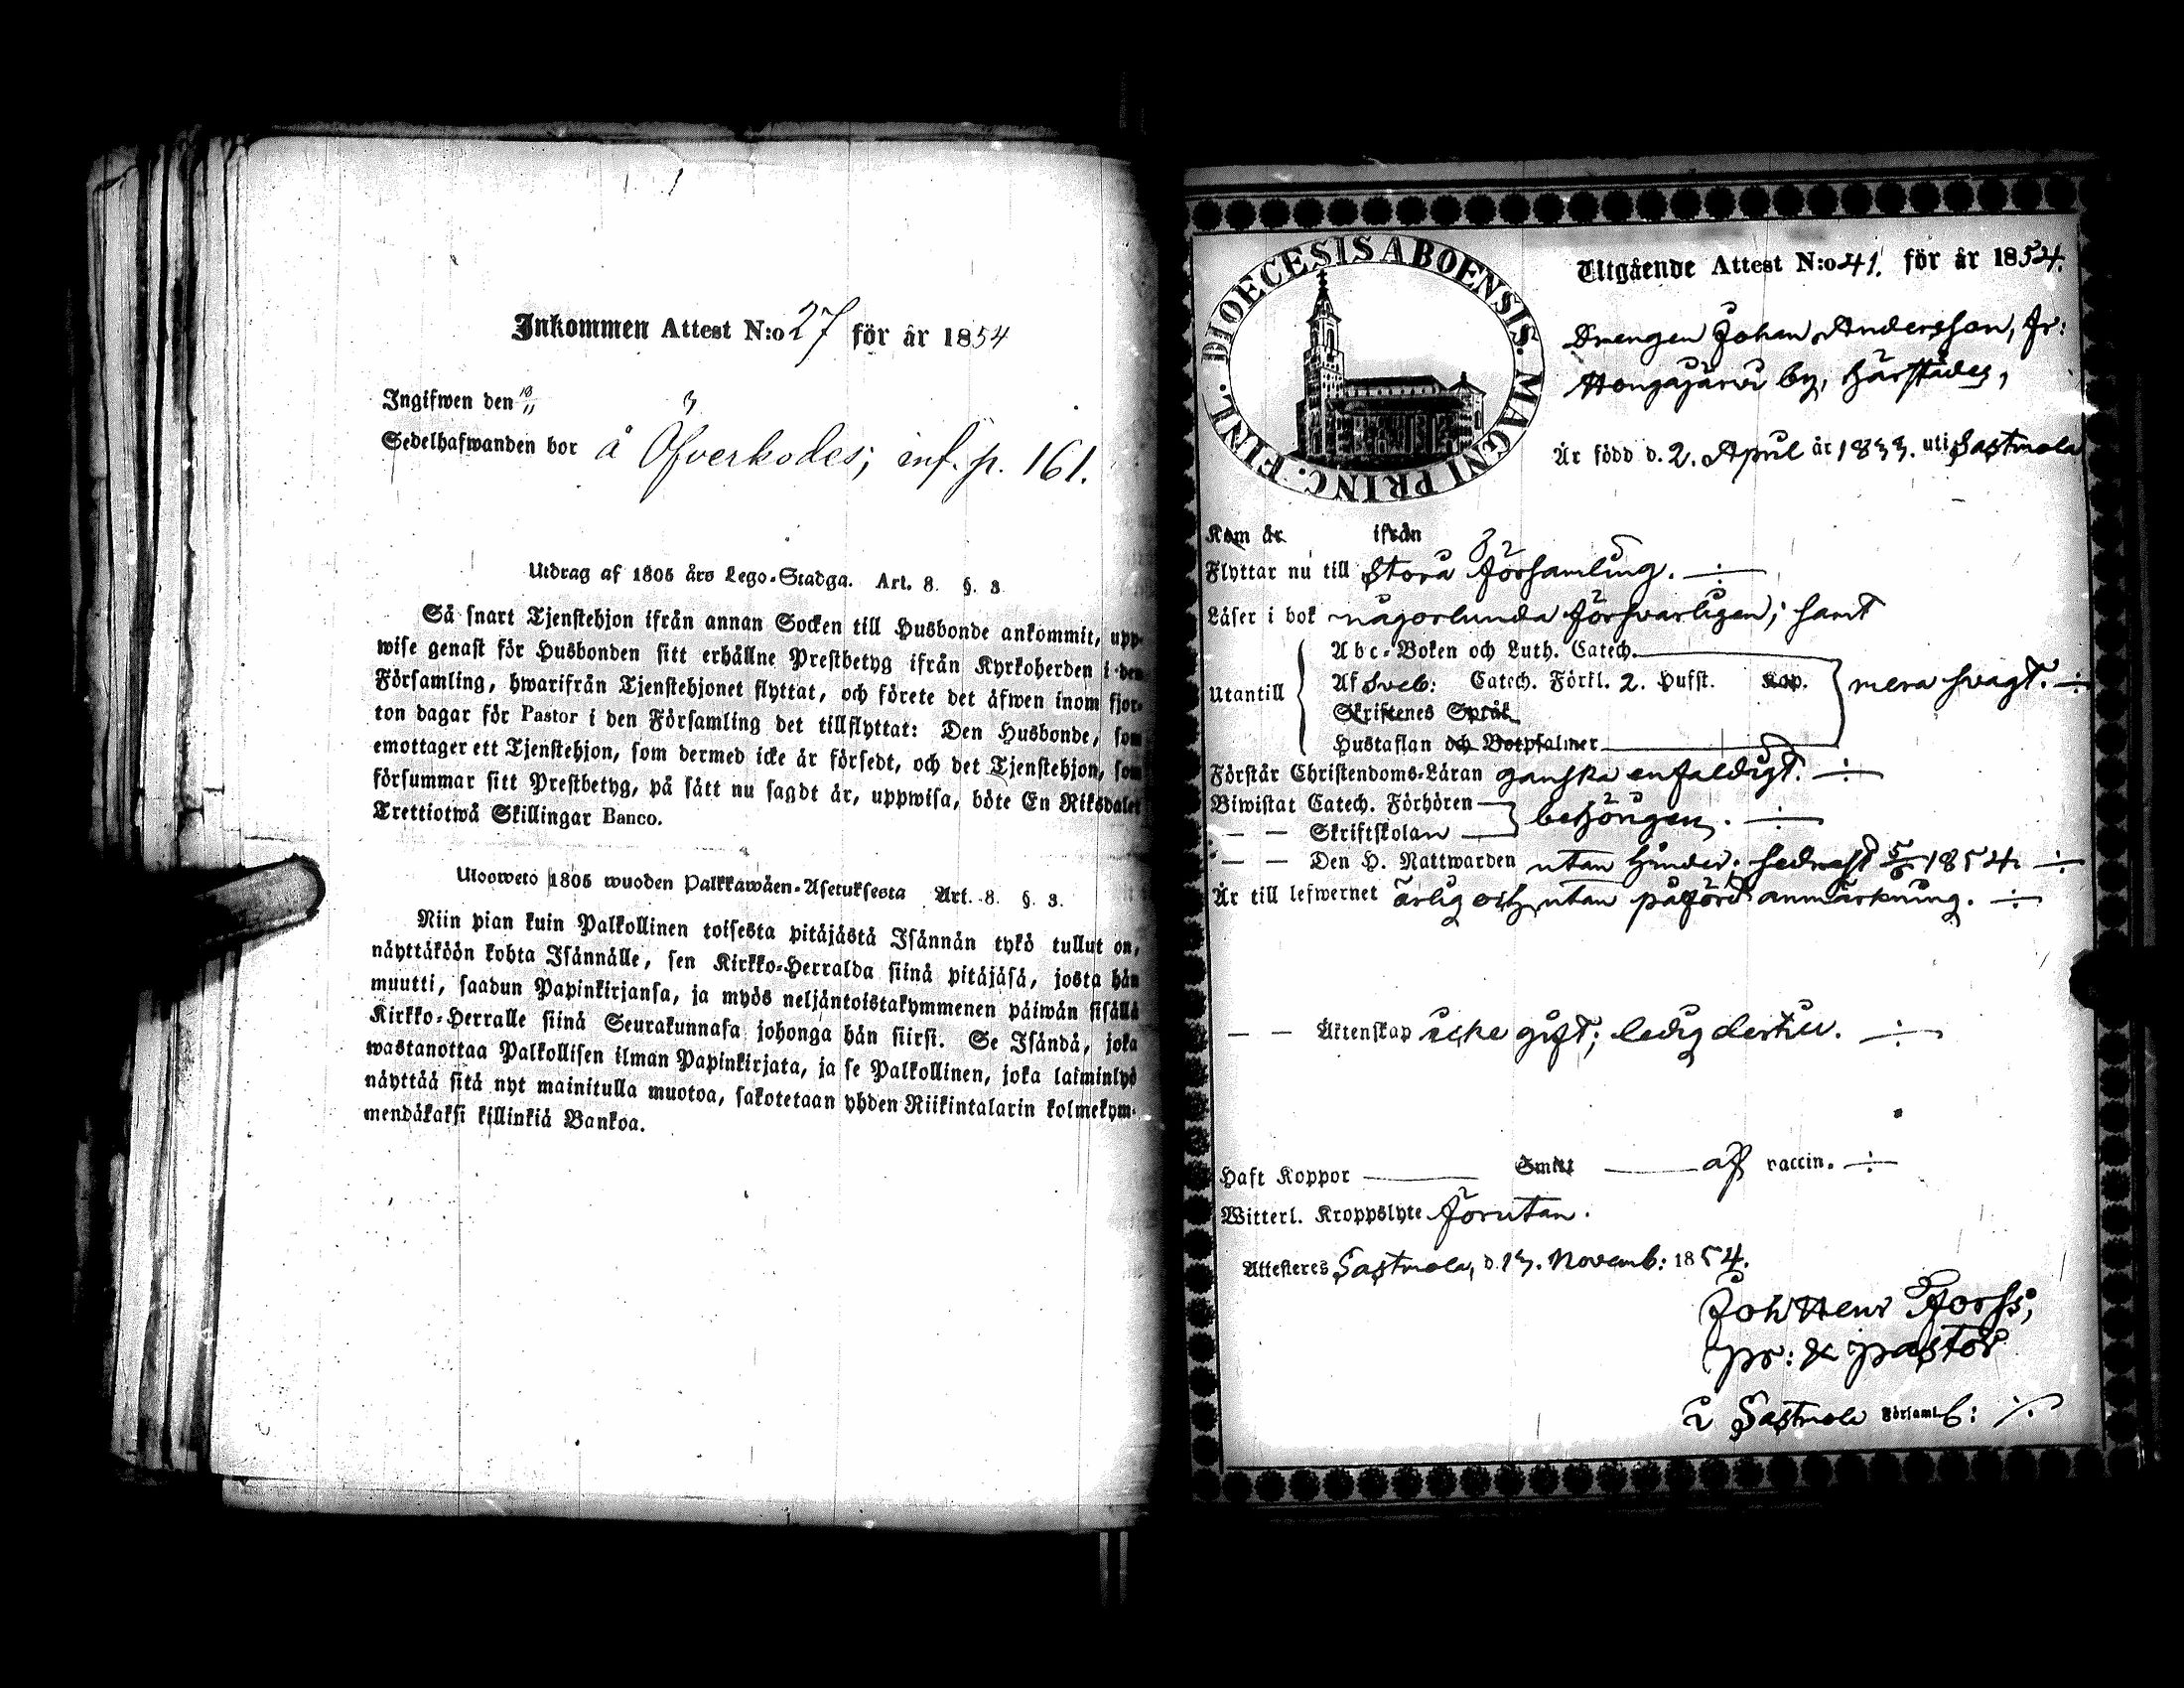 Inkommen Attest N:o 27 för år 1854
Ingifwen den 18/11
Sedelhafwanden bor å Öfverkodes; inf. p. 161.
Utdrag af 1805 års Lego-Stadga. Art. 8. §. 3
Så snart Tjenstehjon ifrån annan Socken till Husbonde ankommit, upp-
wise genast för Husbonden sitt erhållne Prestbetyg ifrån Kyrkoherden i den
Församling, hwarifrån Tjenstehjonet flyttat, och förete det äfwen inom fjor-
ton dagar för Pastor i den Församling det tillflyttat: Den Husbonde, som
emottager ett Tjenstehjon, som dermed icke är försedt, och det Tjenstehjon, som
försummar sitt Prestbetyg, på sätt nu sagdt är, uppwisa, böte En Riksdaler
Trettiotwå Skillingar Banco.
Uloswetö 1805 wuoden Palkkawäen-Asetuksesta Art. 8. §. 3.
Niin pian kuin Palkollinen toisesta pitäjästä Isännän tykö tullut on,
näyttäköön kohta Isännälle, sen Kirkko-Herralda siinä pitäjäsä, josta hän
muutti, saadun Papinkirjansa, ja myös neljäntoistakymmenen päiwän sisällä
Kirkko-Herralle siinä Seurakunnasa johonga hän siirsi. Se Isändä, joka
wastanottaa Palkollisen ilman Papinkirjata, ja se Palkollinen, joka laiminlyö
näyttää sitä nyt mainitulla muotoa, sakotetaan yhden Riikintalarin kolmekym-
mendäkaksi killinkiä Bankoa.
DIOECESIS ABOENSIS. MAGNI PRINC. FINL.
Utgående Attest N:o 41. för år 1854.
Drengen Johan Andersson, fr:
Hongajärvi by, härstädes,
Är född d. 2. April år 1833. uti Sastmola
Kom år ifrån
Flyttar nu till Stora Församling.
Läser i bok någorlunda försvarligen; samt
Utantill
Abc-Boken och Luth. Catech.
Af Sveb: Catech. Förkl. 2. Hufst. Kap.
mera svagt.
Skriftenes Språk
Hustaflan och Botpsalmer
Förstår Christendoms-Läran ganska enfaldigt.
Biwistat Catech. Förhören
behörigen.
— — Skriftskolan
— — Den H. Nattwarden utan hinder; sednast 5/6 1854.
Är till lefwernet ärlig och utan påförd anmärkning.
— — Äktenskap icke gift; ledig dertill.
Haft Koppor Smitt af vaccin.
Witterl. Kroppslyte förutan.
Attesteres Sastmola, d. 13. Novemb: 1854.
Joh Henr Forss;
pr: & pastor
i Sastmola Församl